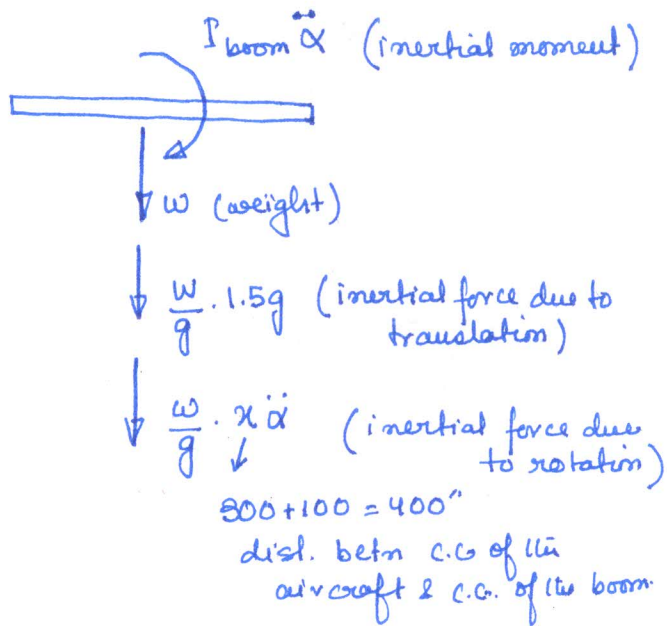 I boom α̈ (inertial moment)
w (weight)
w/g . 1.5g (inertial force due to
translation)
w/g . x α̈ (inertial force due
to rotation)
300+100 = 400"
dist. betn c.G of the
aircraft & c.G. of the boom.